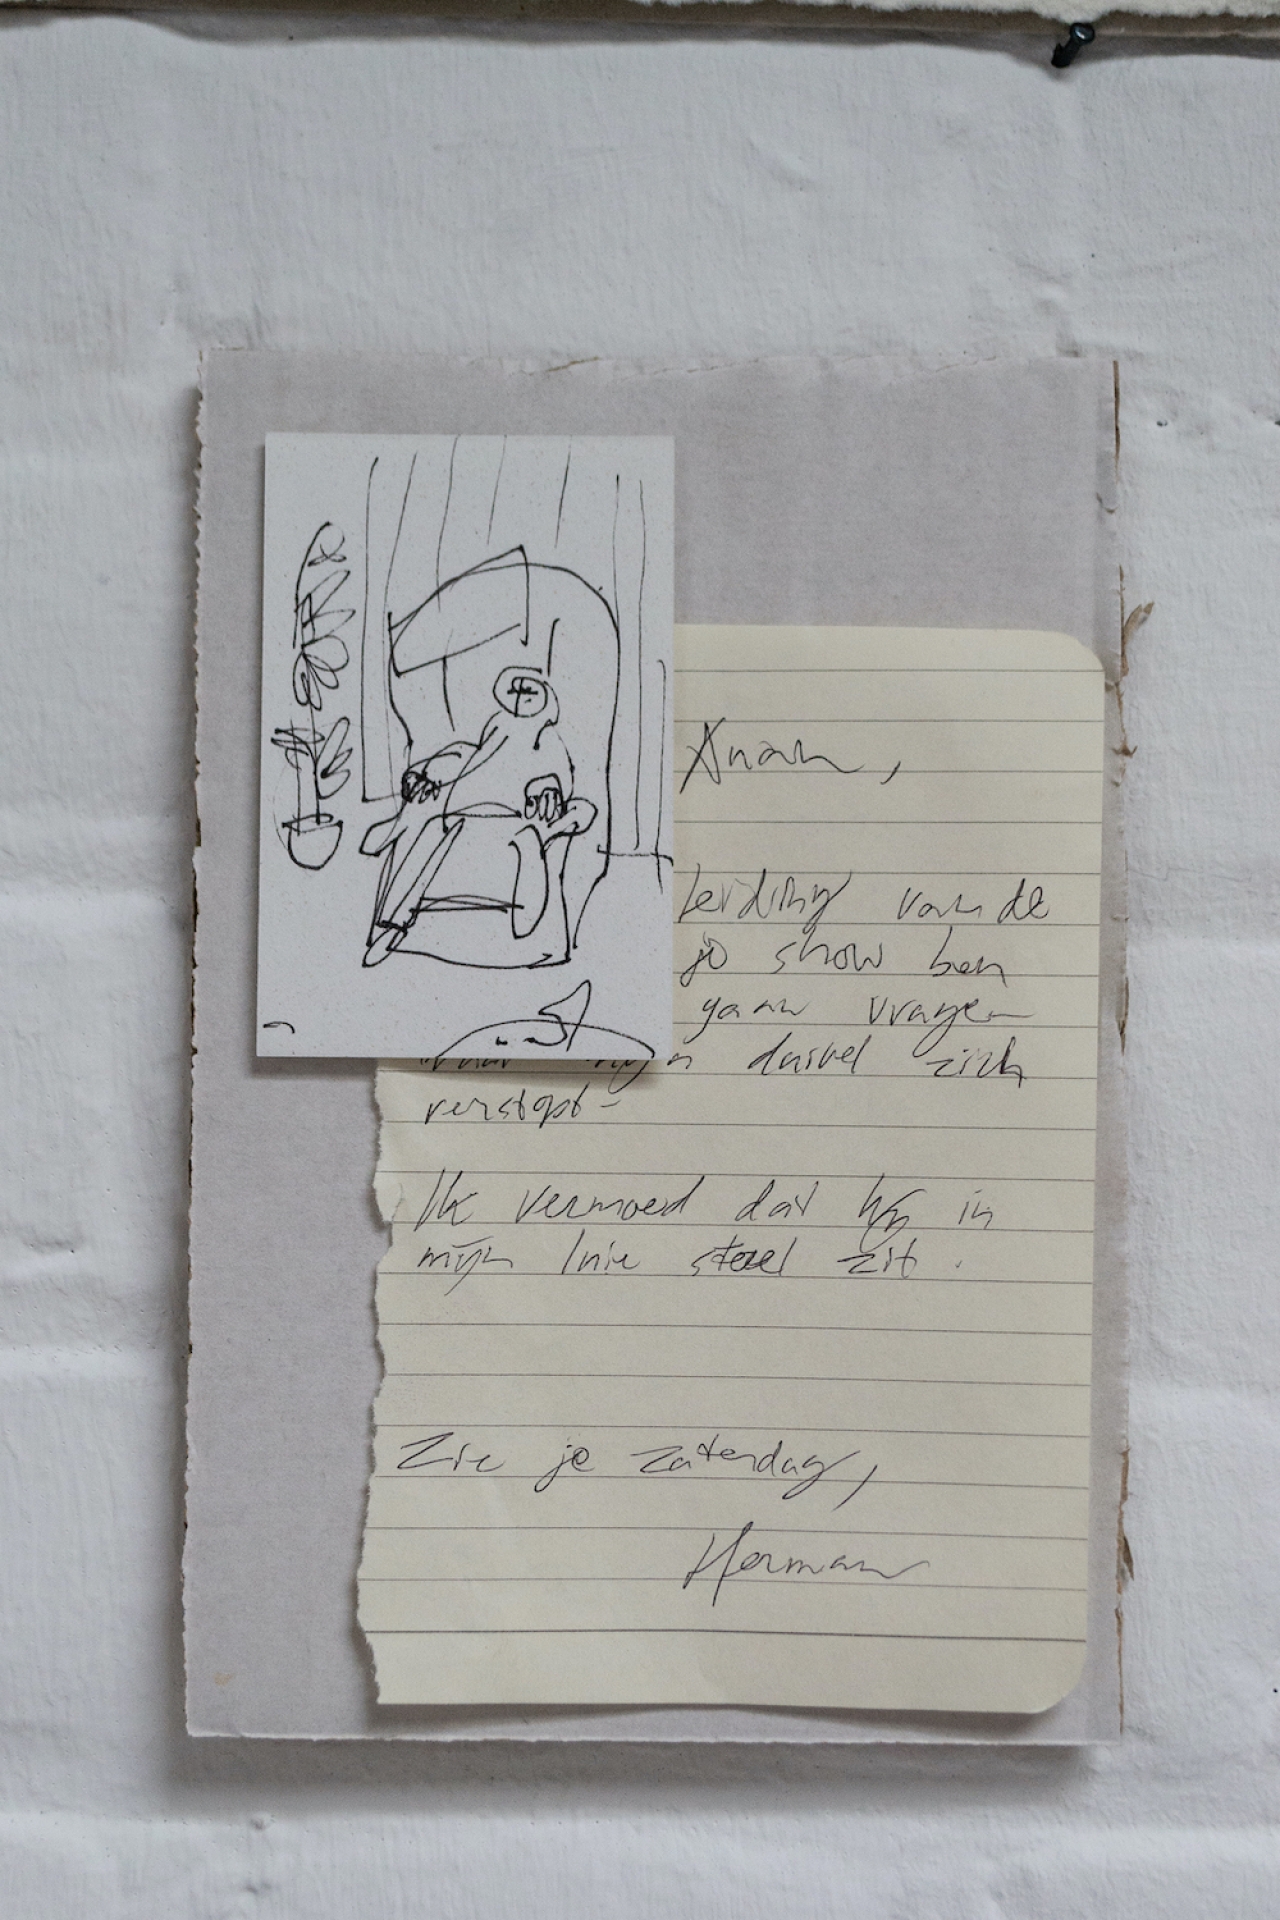 leiding van de
je show ben
gaan vragen
duivel zich
verstopt-
Ik vermoed dat hij in
mijn luie stoel zit.
Zie je zaterdag,
Herman